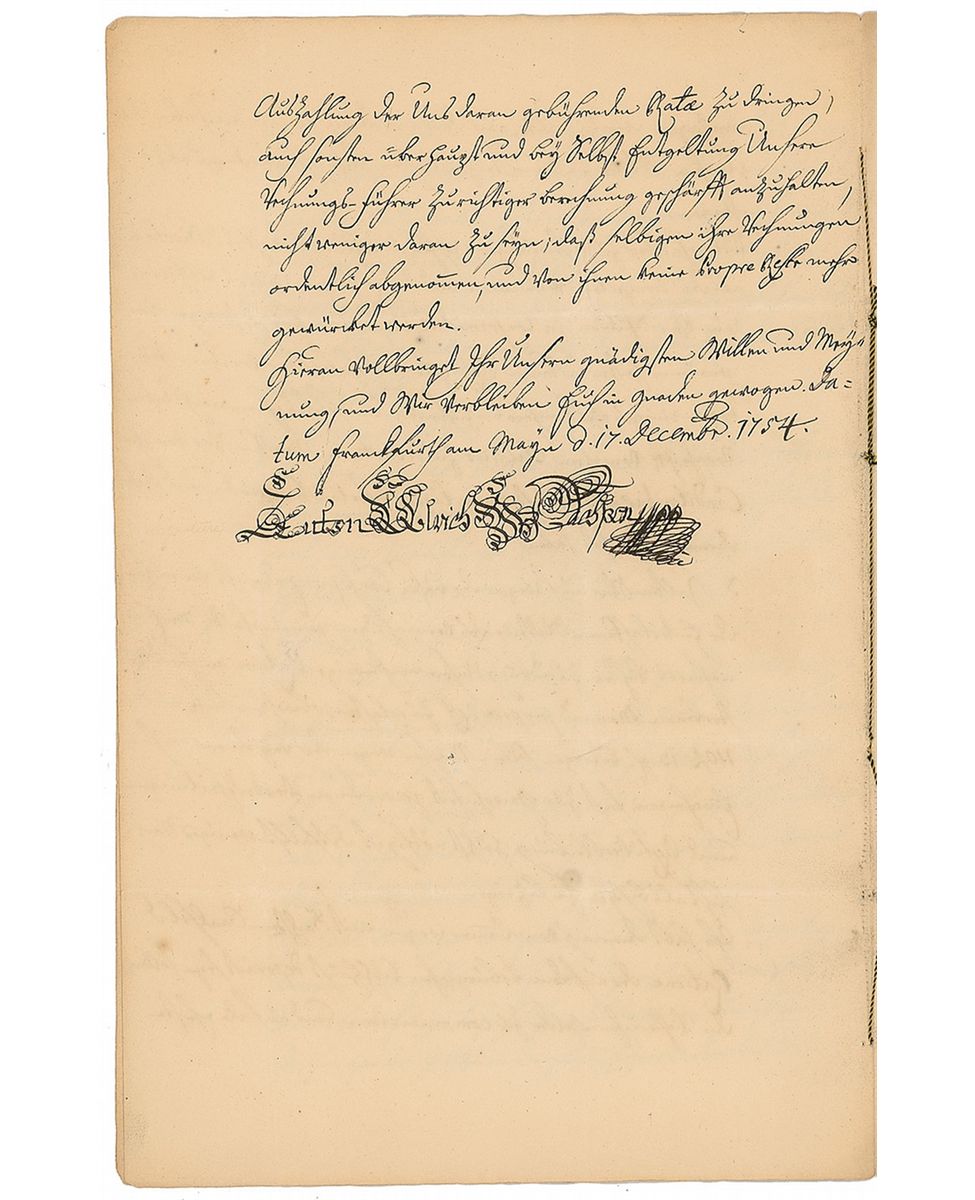 Auszahlung der Uns daran gebührenden Ratæ zu dringen,
auch sonsten überhaupt und bey Selbst Entgeltung Unsere
Rechnungs-Führer zu richtiger berechnung geschärfft anzuhalten,
nicht weniger daran zu seyn, daß selbigen ihre Rechnungen
ordentlich abgenom̄en, und von ihnen keine propre Reste mehr
gewürcket werden.
Hieran Vollbringet Ihr Unsern gnädigsten Willen und Mey=
nung, und Wir Verbleiben Euch in Gnaden gewogen. Da=
tum Franckfurth am Mayn d. 17. Decembr. 1754.
Anton Ulrich HZ Sachsen